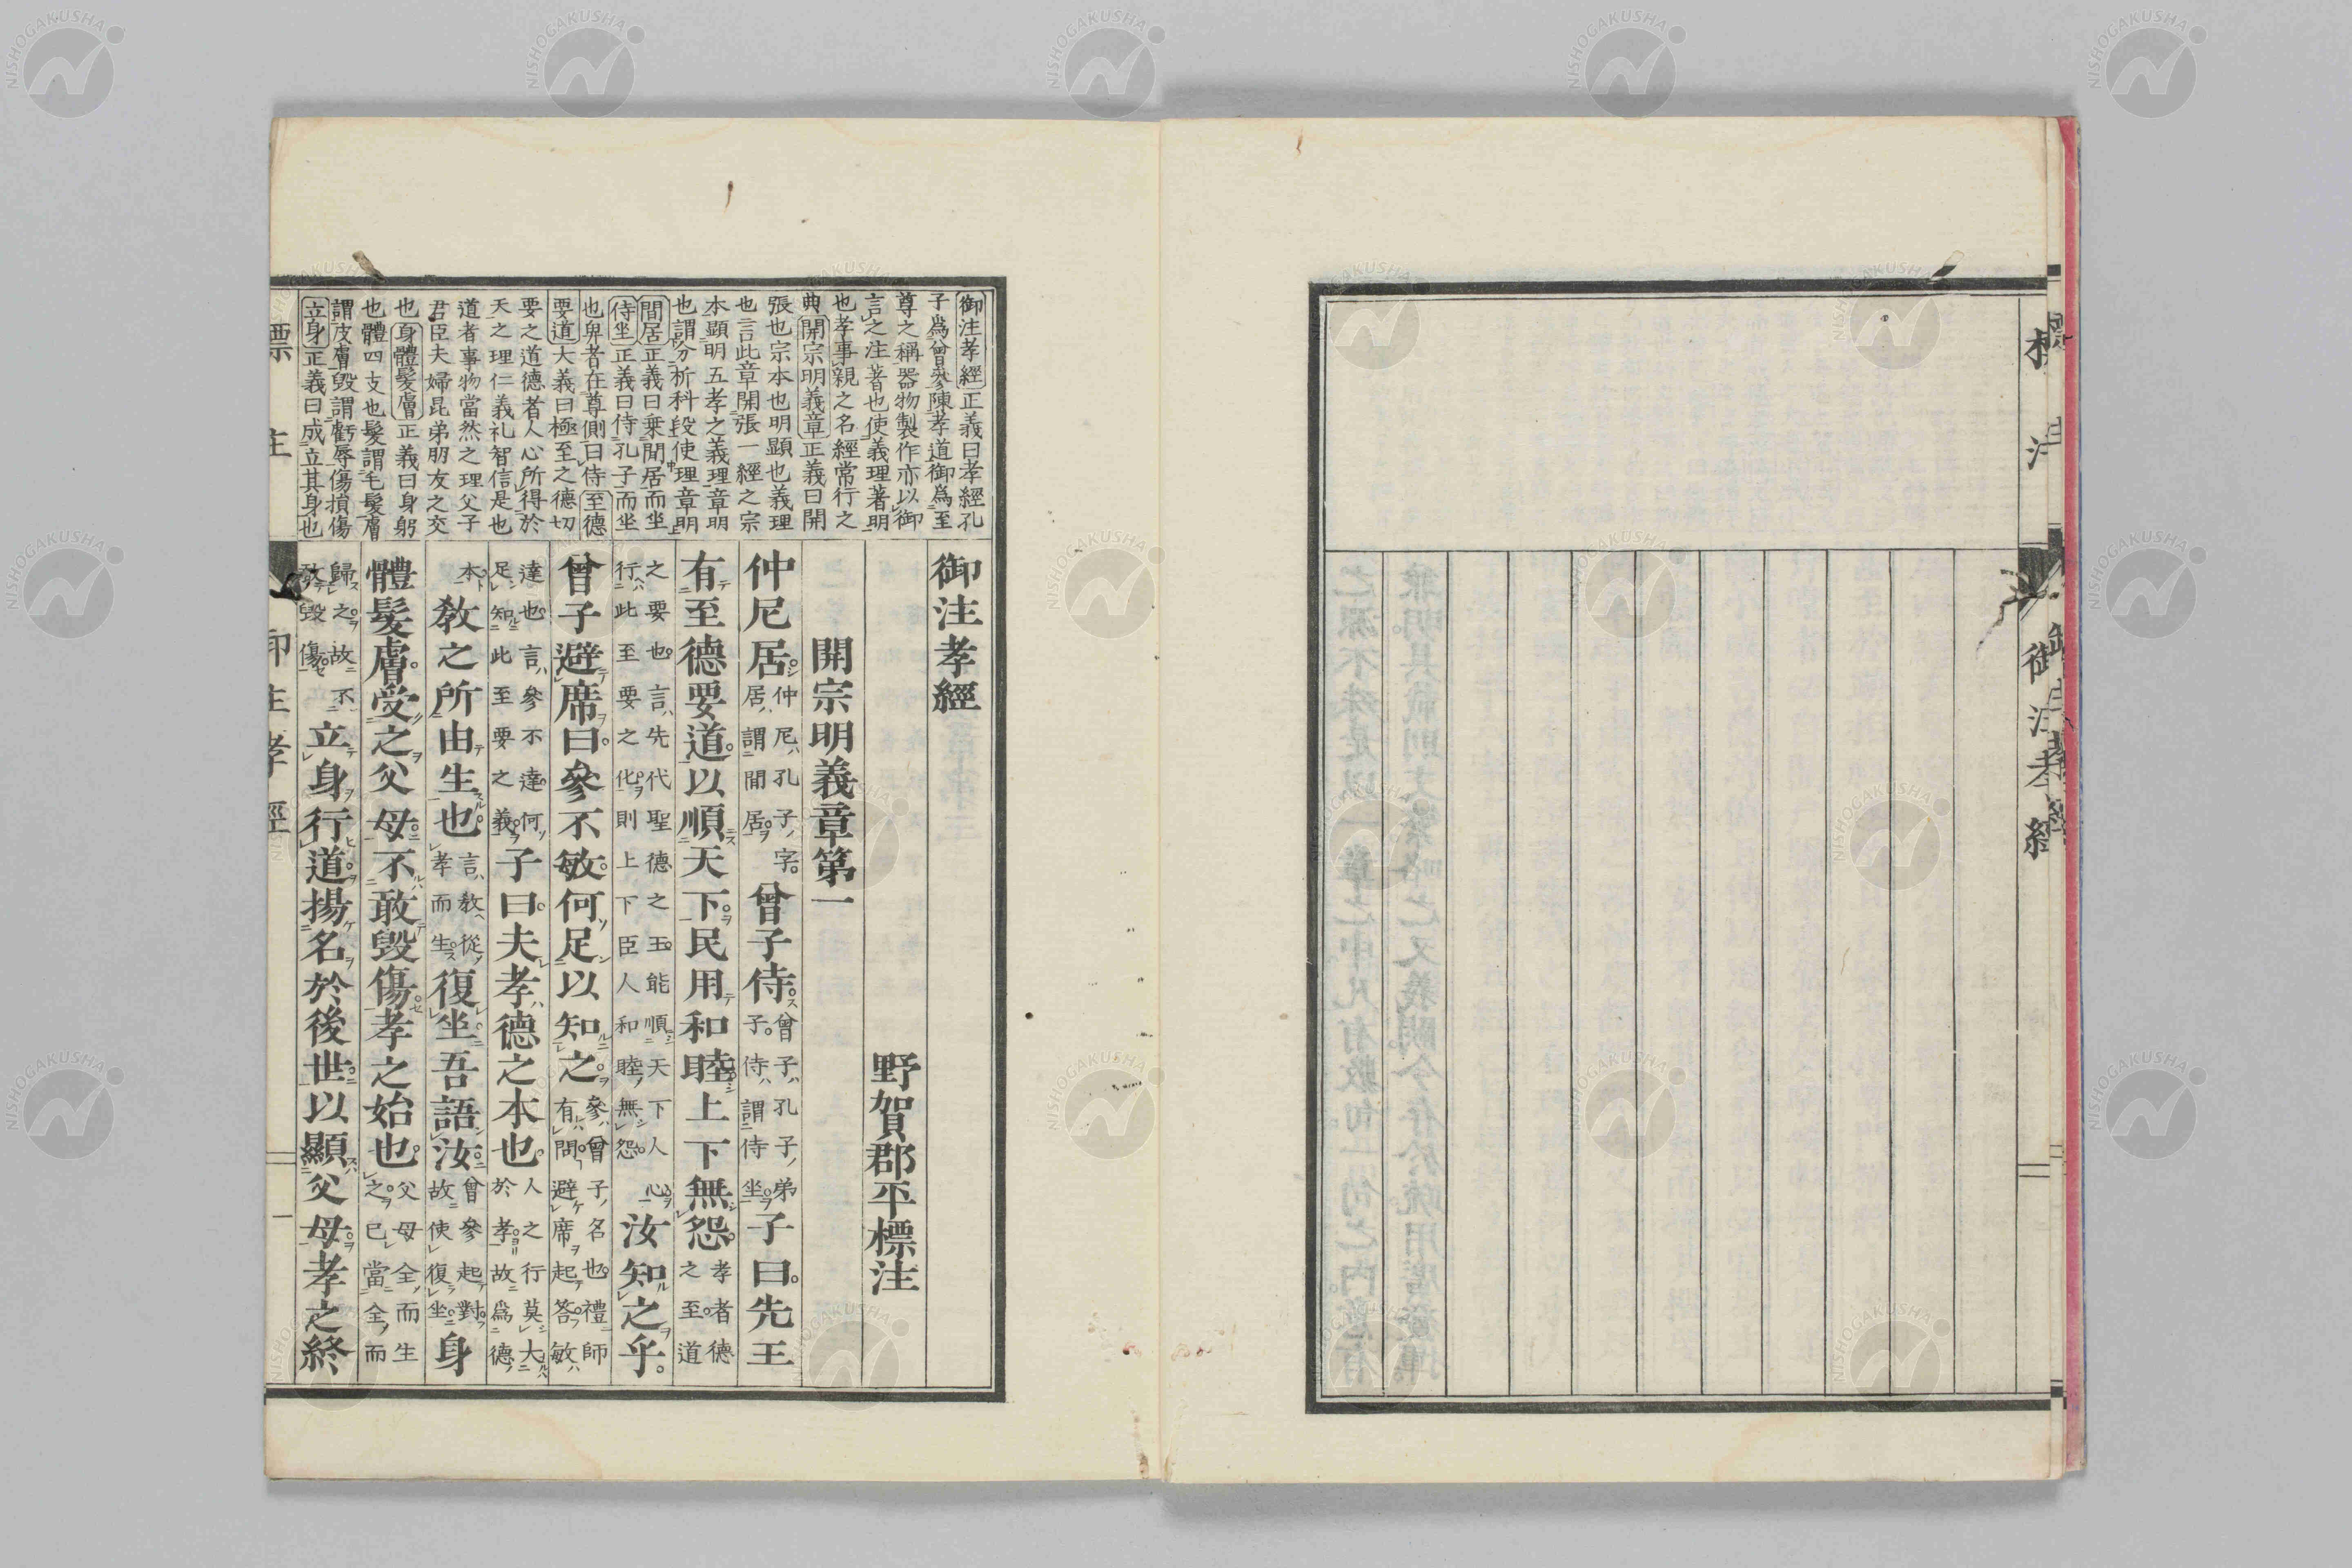 標注
御注孝經
御注孝經正義曰孝經孔
子爲曾參陳孝道御爲至
尊之稱器物製作亦以御
言之注著也使義理著明
也孝事親之名經常行之
典開宗明義章正義曰開
張也宗本也明顯也義理
也言此章開張一經之宗
本顯明五孝之義理章明
也謂分析科段使理章明
間居正義曰乗間居而坐
侍坐正義曰侍孔子而坐
也卑者在尊側曰侍至德
要道大義曰極至之德切
要之道德者人心所得於
天之理仁義礼智信是也
道者事物當然之理父子
君臣夫婦昆弟朋友之交
也身體髮膚正義曰身躬
也體四支也髮謂毛髮膚
謂皮膚毀謂虧辱傷損傷
立身正義曰成立其身也
御注孝經
野賀郡平標注
開宗明義章第一
仲尼居仲尼ハ孔子ノ字居ハ謂間居曾子侍曾子ハ孔子ノ弟子侍ハ謂侍坐子曰先王
有至德要道以順天下民用和睦上下無怨孝者德之至道
之要也言先代聖德之王能順天下人心行此至要之化則上下臣人和睦無怨汝知之乎
曾子避席曰參不敏何足以知之參曾子名也禮師有問避席起答敏
達也言參不達何足知此至要之義子曰夫孝德之本也人之行莫大於孝故爲德
本教之所由生也言教從孝而生復坐吾語汝曾參起對故使復坐身
體髮膚受之父母不敢毀傷孝之始也父母全而生之己當全而
歸之故不敢毀傷立身行道揚名於後世以顯父母孝之終
標注
御注孝經
一
NISHOGAKUSHA